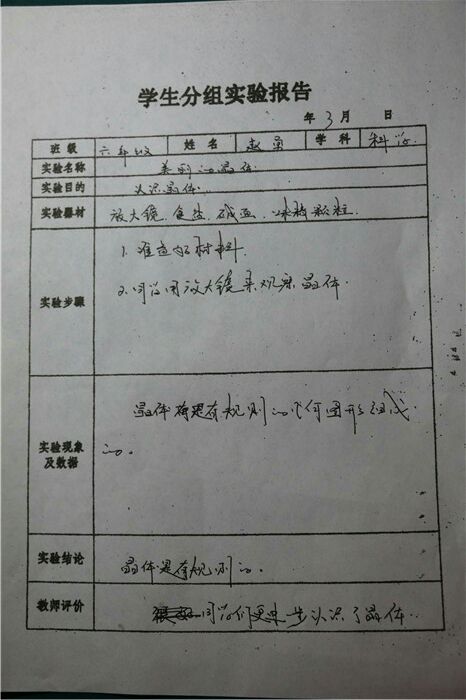 学生分组实验报告
年 3 月 日
班级 六年级 姓名 赵勇 学科 科学
实验名称 美丽的晶体
实验目的 认识晶体.
实验器材 放大镜 食盐 碱面 味精颗粒
1. 准备好材料
实验步骤 2. 同学用放大镜来观察晶体.
晶体都是有规则的几何图形组成
实验现象 的。
及数据
实验结论 晶体是有规则的.
教师评价 同学们更进一步认识了晶体.